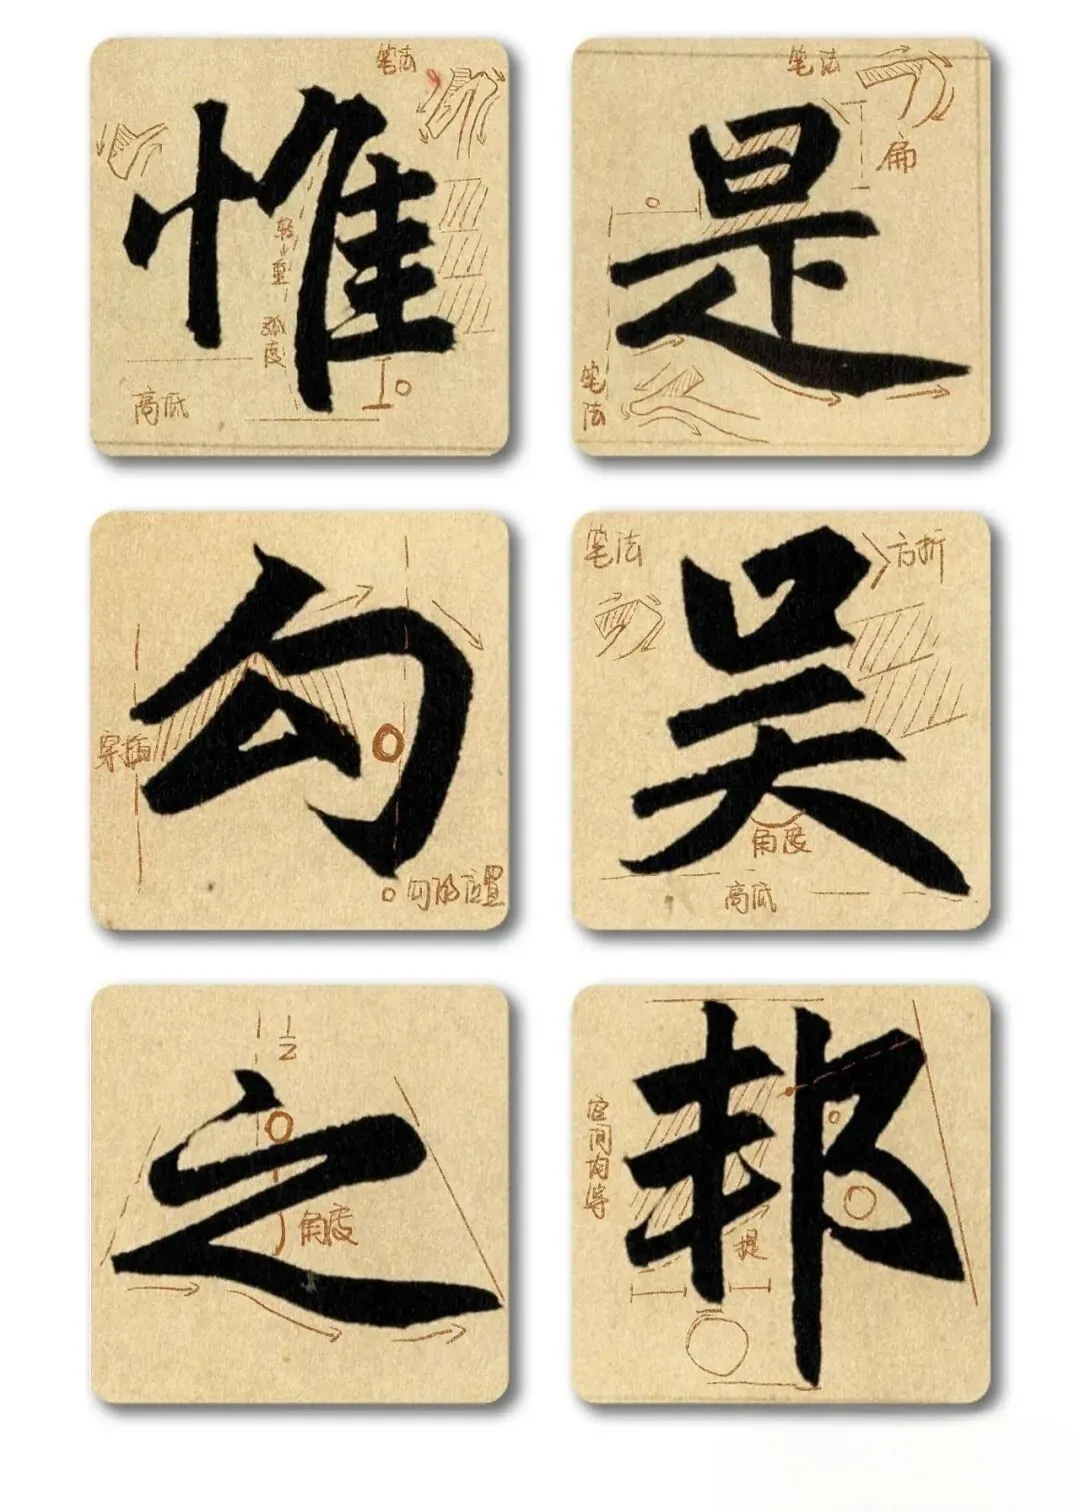 惟
笔法
轻
重
弧度
高低
是
笔法
扁
笔法
勾
穿插
勾的位置
吴
笔法
方折
角度
高低
之
1/2
角度
邦
空间均等
提